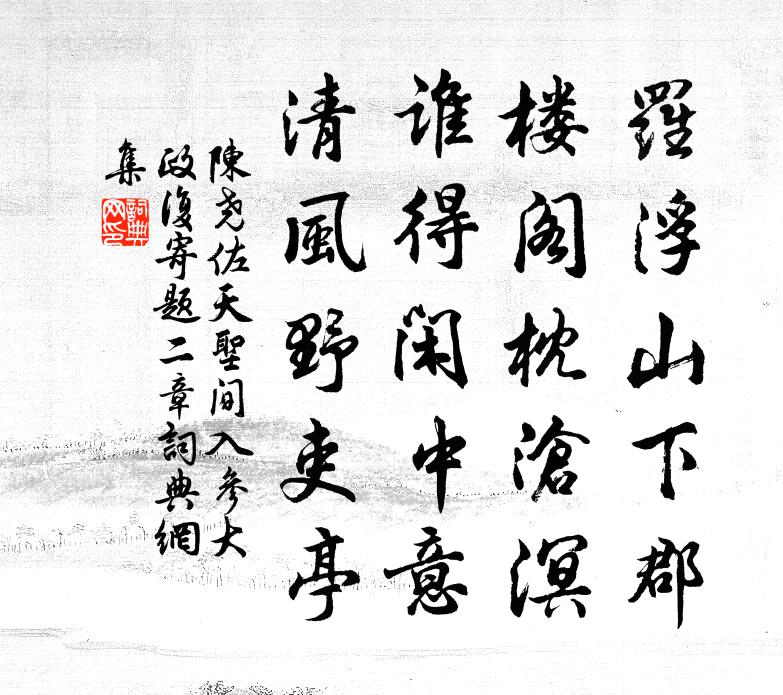 羅浮山下郡
楼阁枕滄溟
谁得闲中意
清風野吏亭
陳尧佐天聖间入參大
政復寄题二章詞典網
集
詞典
网印